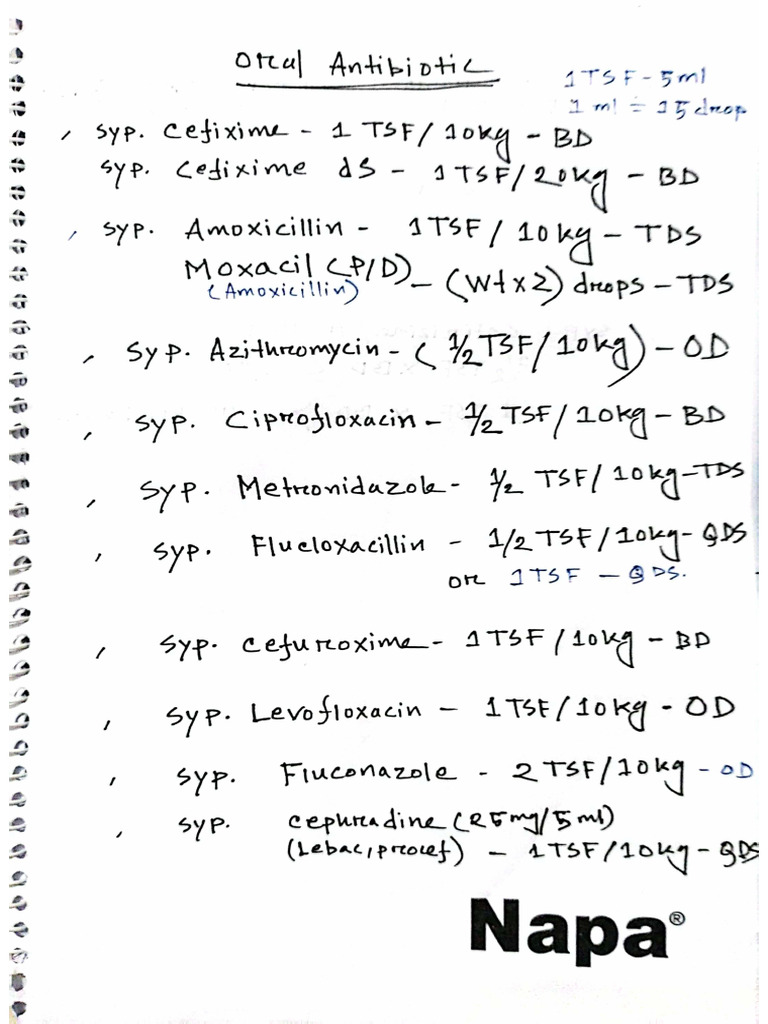 Oral Antibiotic
1 TSF - 5ml
1 ml = 15 drop
syp. Cefixime - 1 TSF/10kg - BD
syp. Cefixime dS - 1 TSF/20kg - BD
syp. Amoxicillin - 1TSF/10kg - TDS
Moxacil (P/D) - (Wt x 2) drops - TDS
(Amoxicillin)
syp. Azithromycin - (1/2 TSF/10kg) - OD
syp. Ciprofloxacin - 1/2 TSF/10kg - BD
syp. Metronidazole - 1/2 TSF/10kg - TDS
syp. Flucloxacillin - 1/2 TSF/10kg - QDS
or 1TSF - QDS.
syp. cefuroxime - 1TSF/10kg - BD
syp. Levofloxacin - 1TSF/10kg - OD
syp. Fluconazole - 2 TSF/10kg - OD
syp. cephradine (25mg/5ml)
(Lebac, procef) - 1TSF/10kg - QDS
Napa®